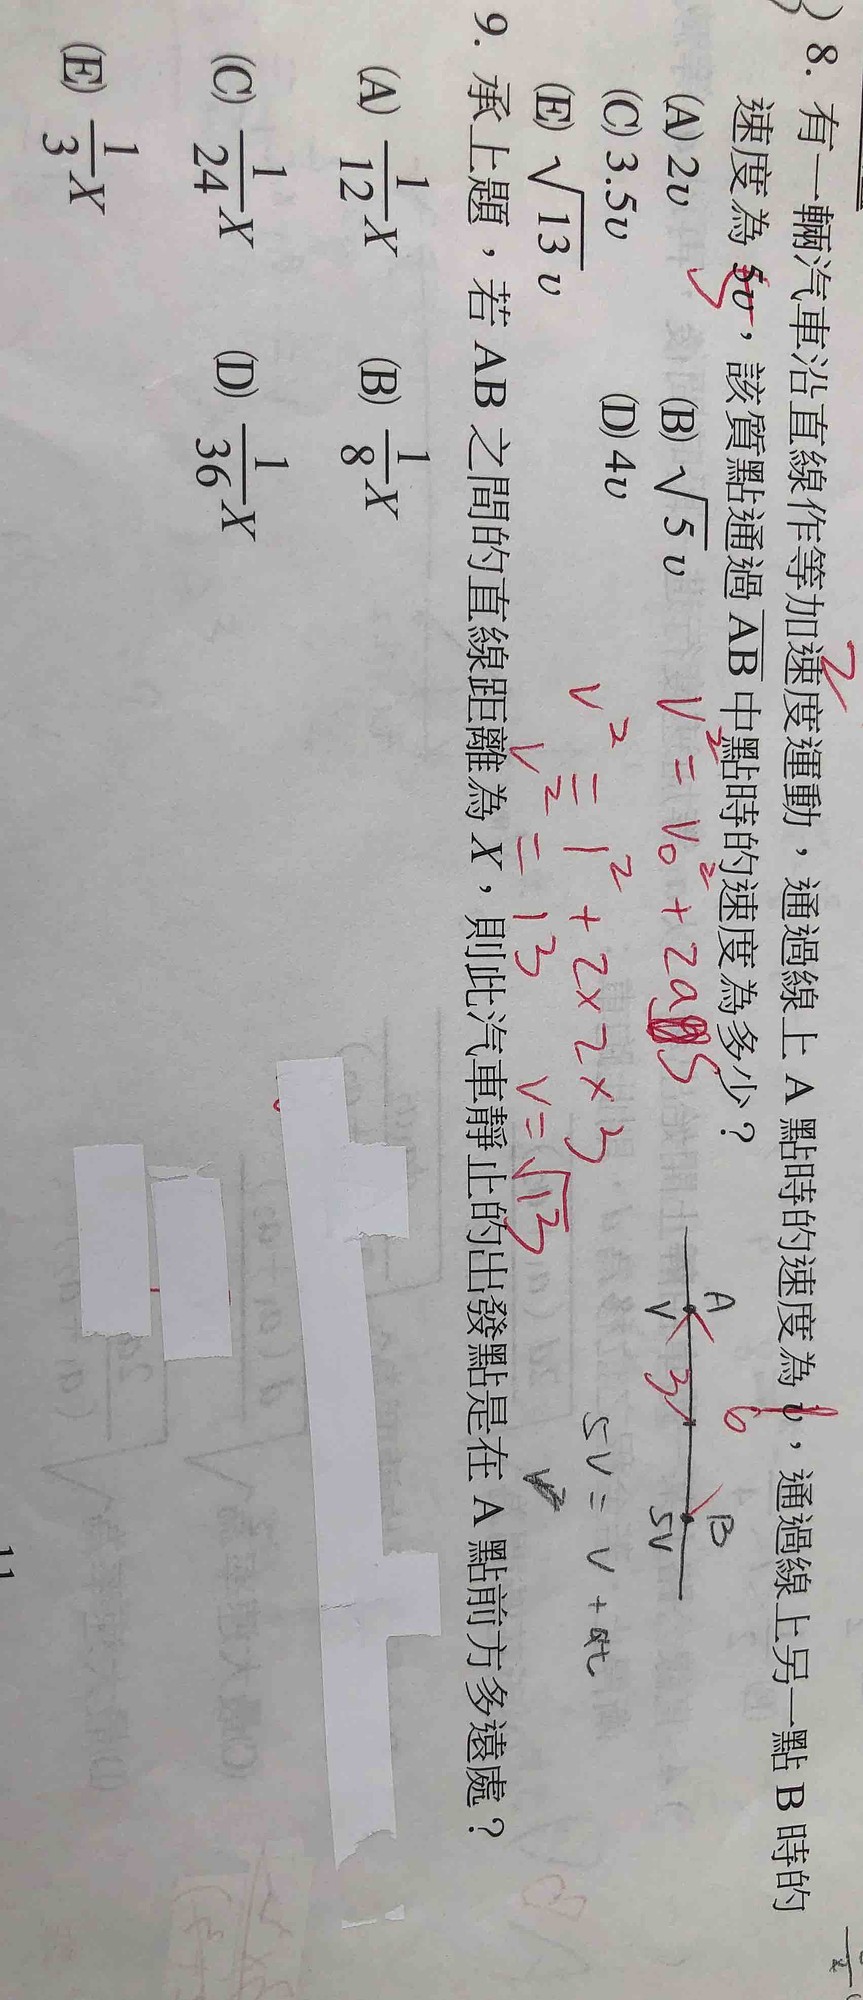 8. 有一輛汽車沿直線作等加速度運動，通過線上 A 點時的速度為 v，通過線上另一點 B 時的
速度為 5v，該質點通過 AB 中點時的速度為多少？
(A) 2v (B) √5 v
(C) 3.5v (D) 4v
(E) √13 v
2
1
5
V² = V₀² + 2aS
V² = 1² + 2×2×3
V² = 13 V = √13
A 6 B
V 3 5V
5V = V + at
9. 承上題，若 AB 之間的直線距離為 X，則此汽車靜止的出發點是在 A 點前方多遠處？
(A) 1/12 X (B) 1/8 X
(C) 1/24 X (D) 1/36 X
(E) 1/3 X
11